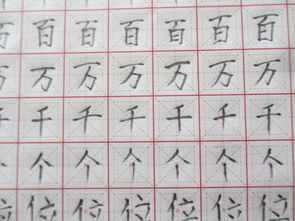 百百百百百百
万万万万万万
千千千千千千
个个个个个个
位位位位位位